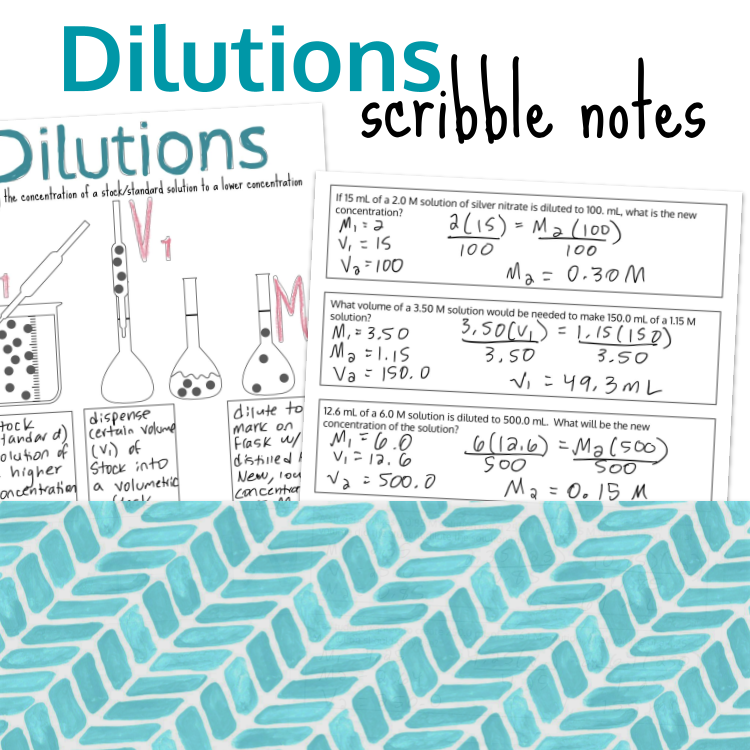 Dilutions
scribble notes
Dilutions
the concentration of a stock/standard solution to a lower concentration
V1
1
M
dispense
certain volume
(V1) of
stock into
a volumetric
dilute to
mark on
flask w/
distilled
New,
olution of
higher
If 15 mL of a 2.0 M solution of silver nitrate is diluted to 100. mL, what is the new
concentration?
M1 = 2
V1 = 15
V2 = 100
2(15) = M2(100)
100 100
M2 = 0.30 M
What volume of a 3.50 M solution would be needed to make 150.0 mL of a 1.15 M
solution?
M1 = 3.50
M2 = 1.15
V2 = 150.0
3.50(V1) = 1.15(150)
3.50 3.50
V1 = 49.3 mL
12.6 mL of a 6.0 M solution is diluted to 500.0 mL. What will be the new
concentration of the solution?
M1 = 6.0
V1 = 12.6
V2 = 500.0
6(12.6) = M2(500)
500 500
M2 = 0.15 M